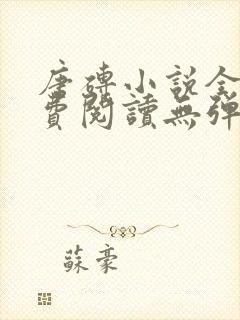 唐磚小說全
費閱讀無彈
蘇豪